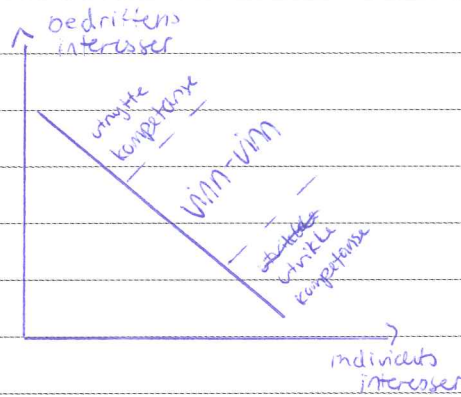 bedriftens
interesser
utnytte
kompetanse
vinn-vinn
utvikle
kompetanse
individets
interesser